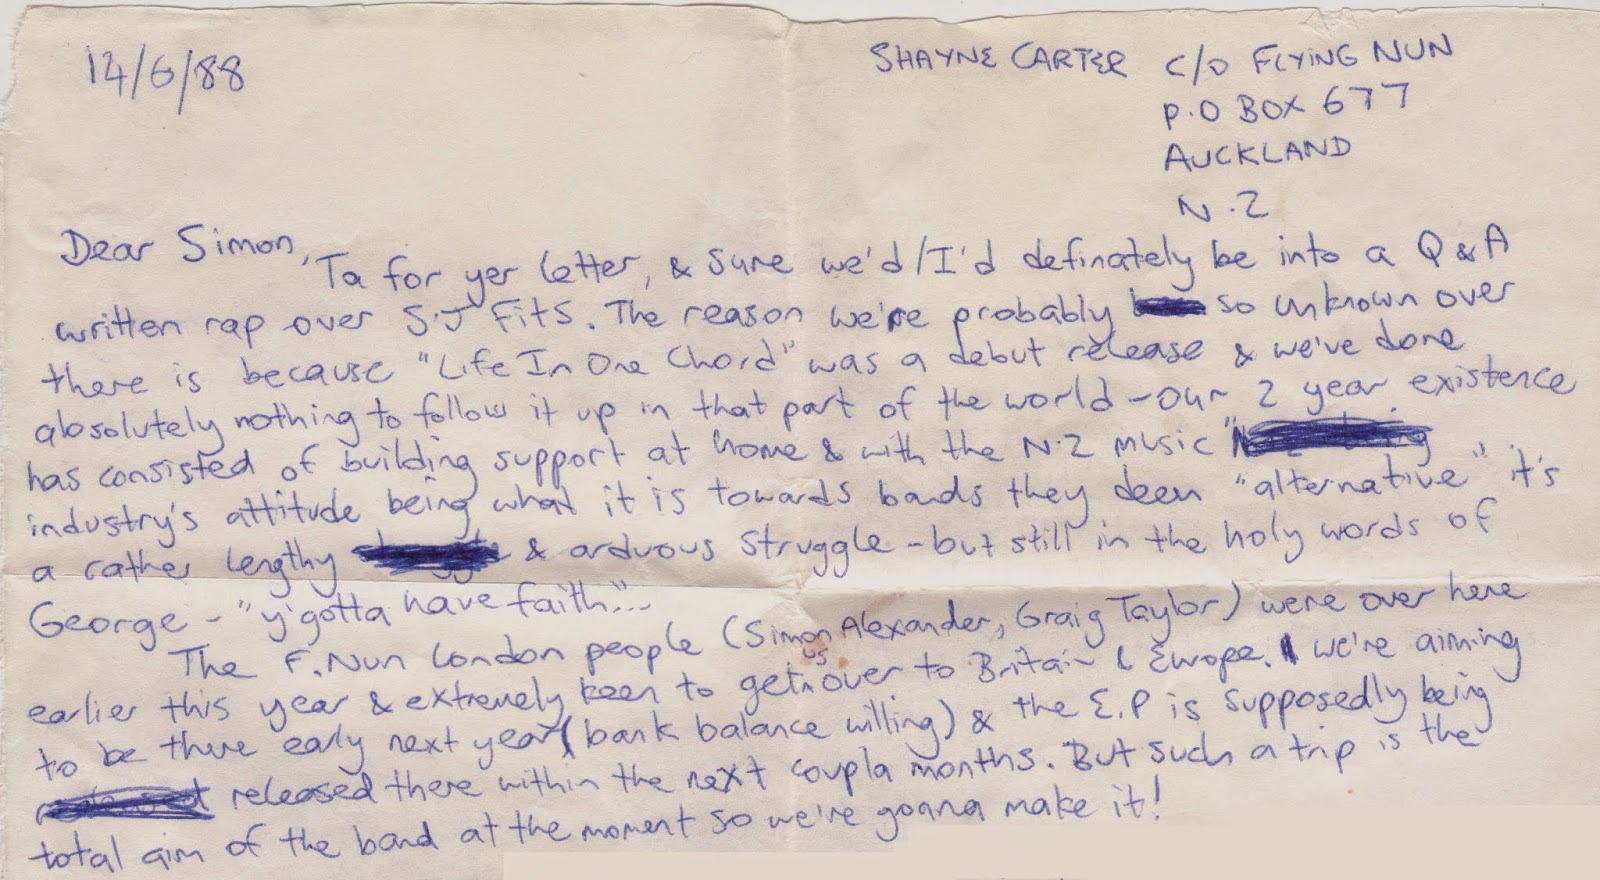 14/6/88
SHAYNE CARTER c/o FLYING NUN
P.O BOX 677
AUCKLAND
N.Z
Dear Simon,
Ta for yer letter, & sure we'd/I'd definately be into a Q & A
written rap over S.J Fits. The reason we're probably so unknown over
there is because "Life In One Chord" was a debut release & we've done
absolutely nothing to follow it up in that part of the world – our 2 year existence
has consisted of building support at home & with the N.Z music
industry's attitude being what it is towards bands they deem "alternative" it's
a rather lengthy & arduous struggle – but still in the holy words of
George – "y'gotta have faith"...
The F.Nun London people (Simon Alexander, Graig Taylor) were over here
earlier this year & extremely keen to get us over to Britain & Europe. We're aiming
to be there early next year (bank balance willing) & the E.P is supposedly being
released there within the next coupla months. But such a trip is the
total aim of the band at the moment so we're gonna make it!